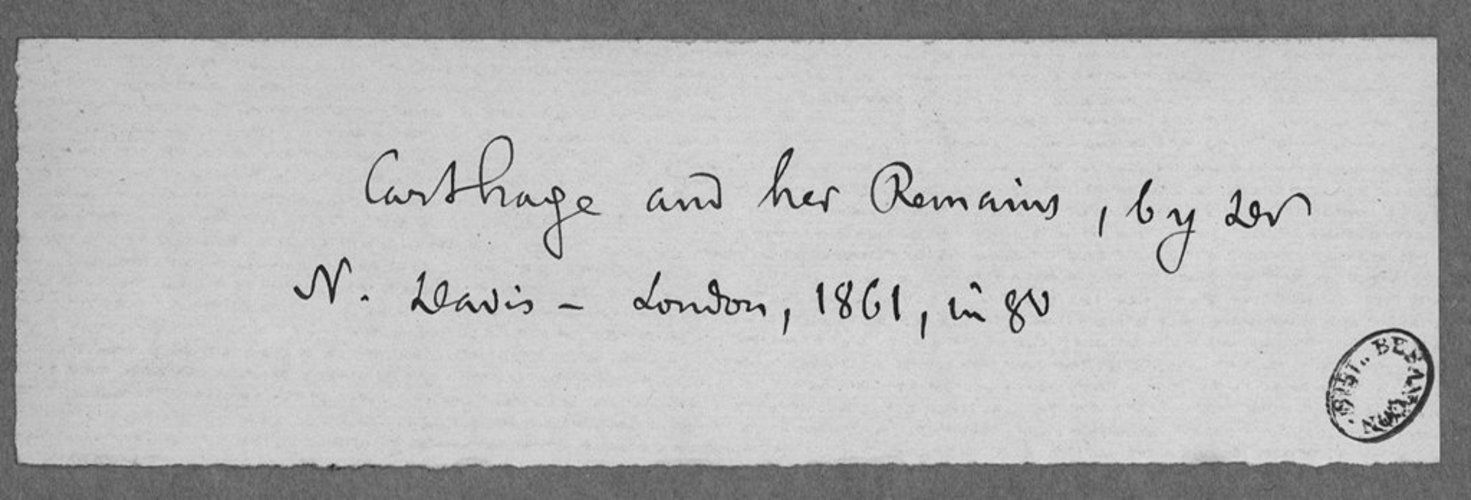 Carthage and her Remains, by Dr
N. Davis - London, 1861, in 8º
BIBL. BESANÇON